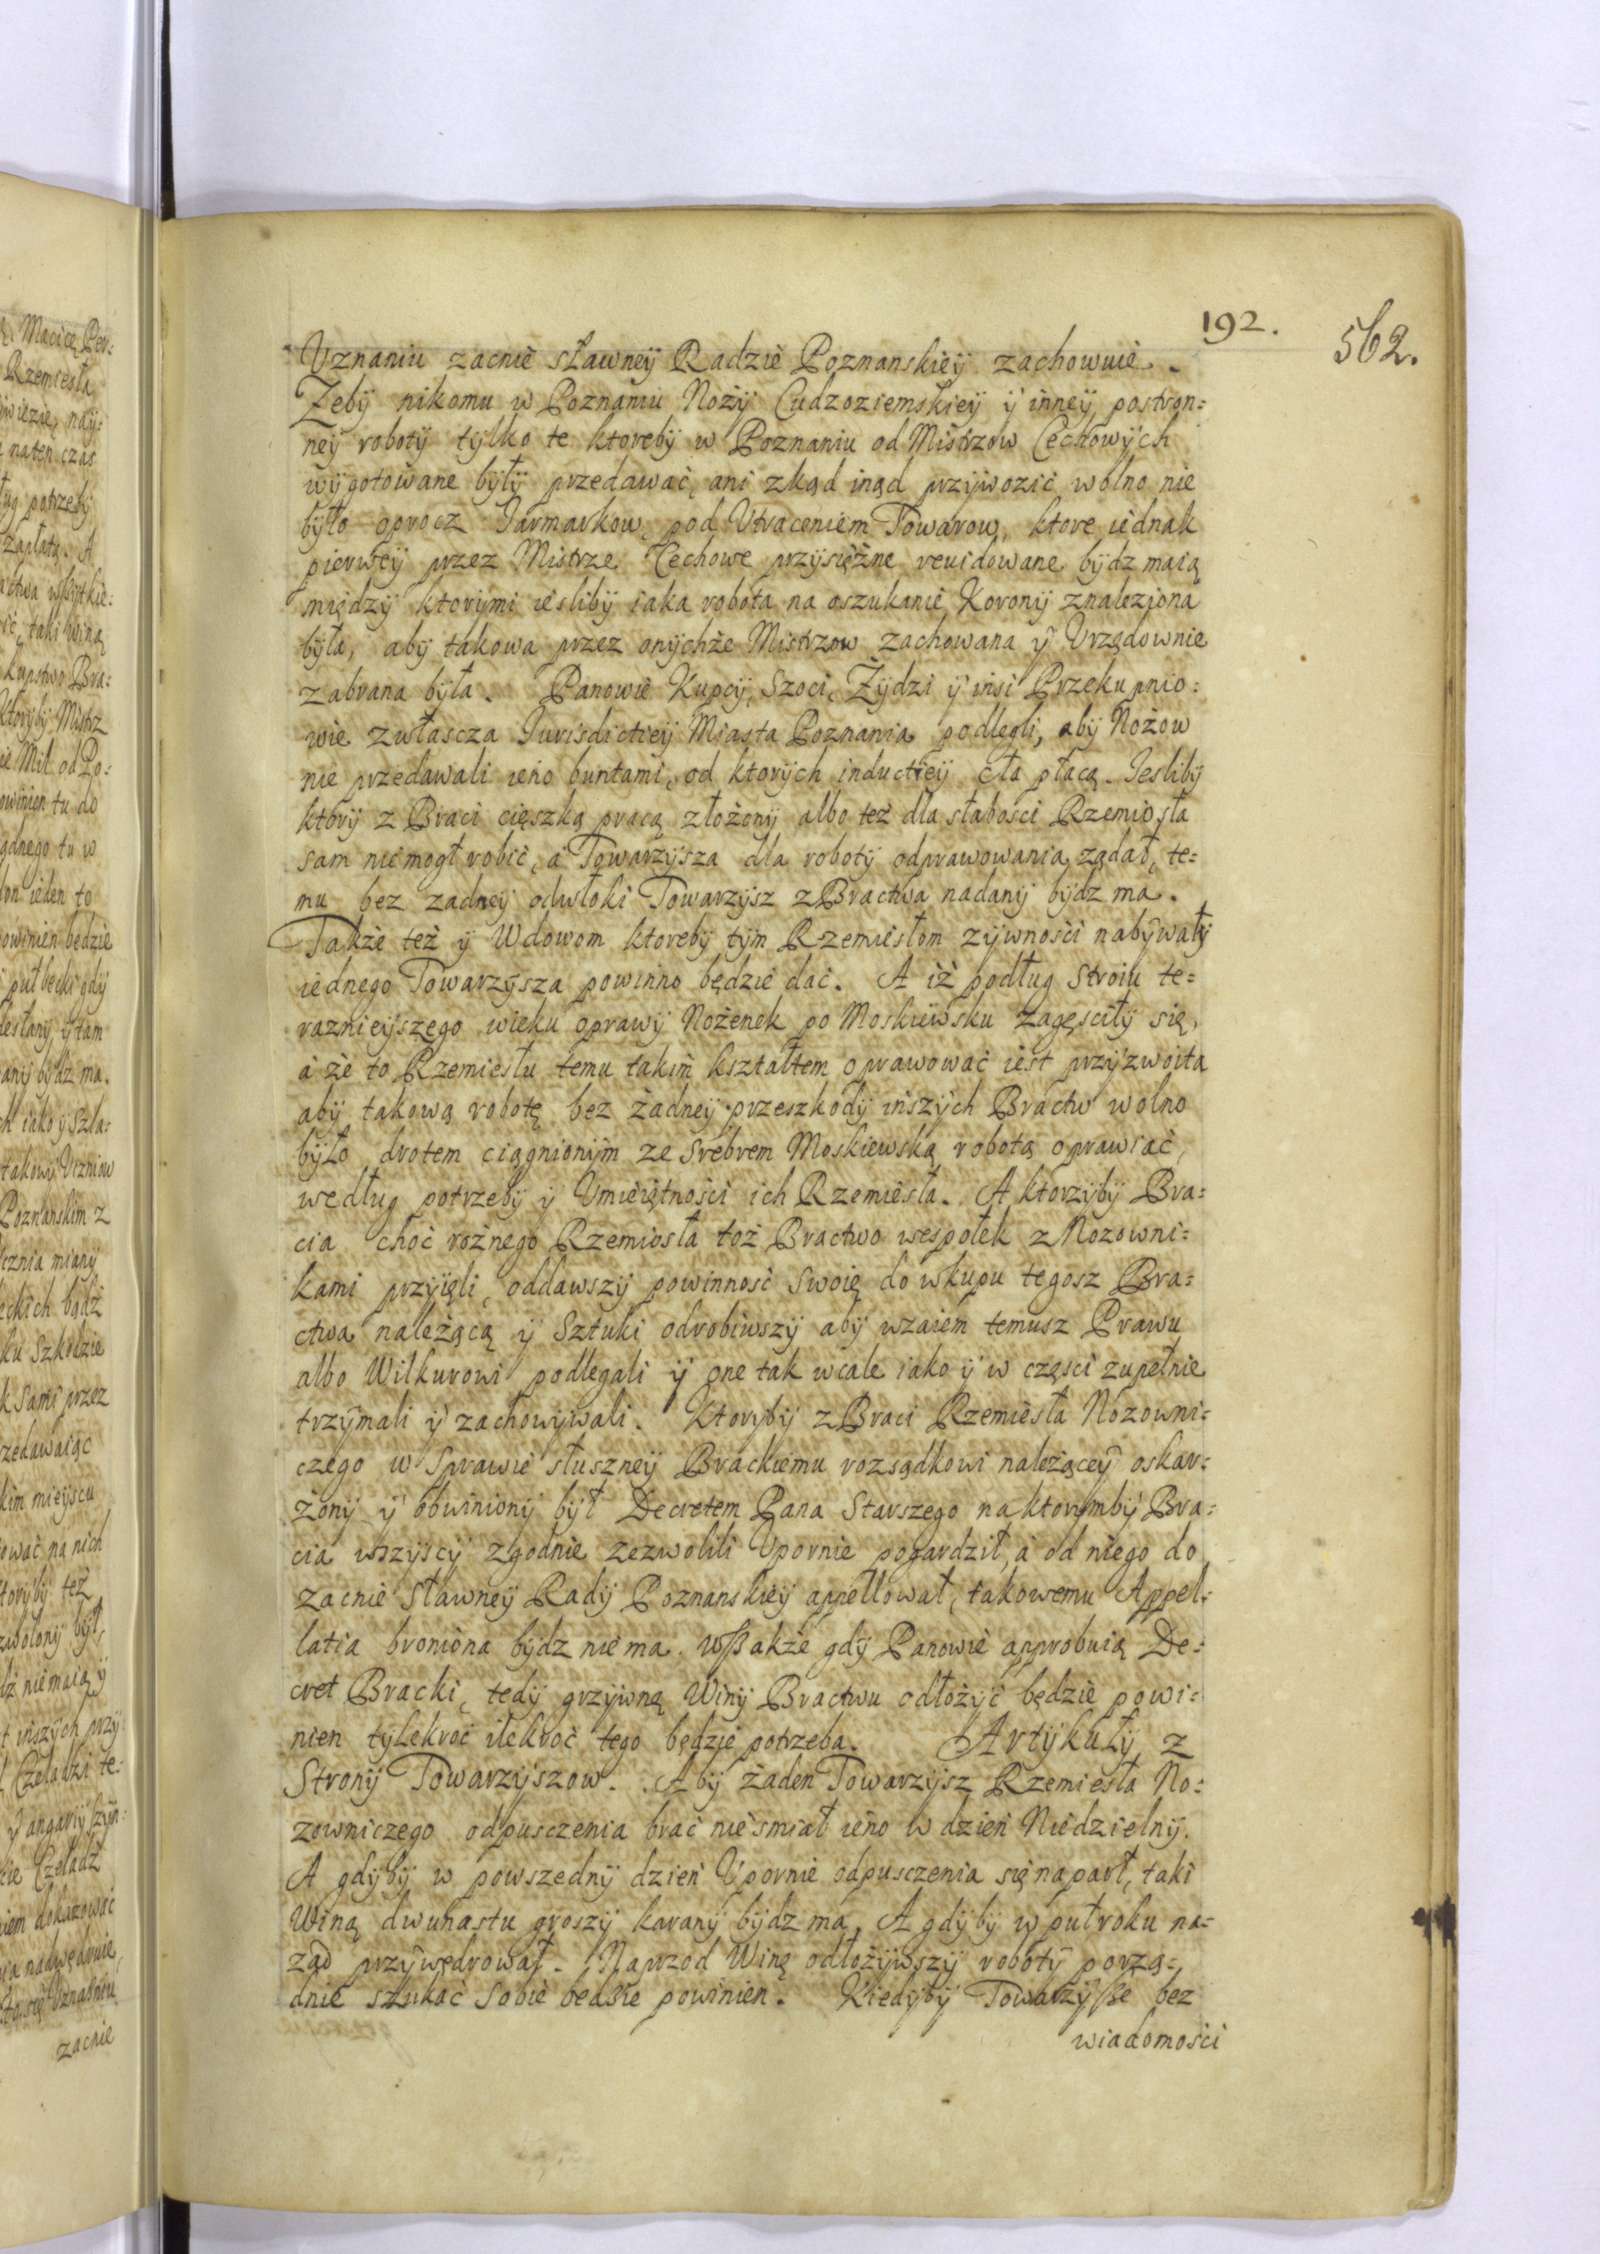 192.
562.
Vznaniu zacnie sławney Radzie Poznanskiey zachowuie.
Zeby nikomu w Poznaniu Noży Cudzoziemskiey y inney postron=
ney roboty tylko te ktoreby w Poznaniu od Mistrzow Cechowych
wygotowane były przedawać, ani zkąd inąd przywozić wolno nie
było oprocz Iarmarkow, pod Vtraceniem Towarow, ktore iednak
pierwey przez Mistrze Cechowe przysiężne reuidowane bydz maią
między ktorymi iesliby iaka robota na oszukanie Korony znaleziona
była, aby takowa przez onychże Mistrzow zachowana y Vrzędownie
zabrana była. Panowie Kupcy, Szoci, Żydzi y insi Przekupnio=
wie zwłascza Iurisdictiey Miasta Poznania podlegli, aby Nożow
nie przedawali ieno buntami, od ktorych inductiey cła płacą. Iesliby
ktory z Braci cięszką pracą złożony albo też dla słabosci Rzemiosła
sam niemogł robić, a Towarzysza dla roboty odprawowania ządał, te=
mu bez zadney odwłoki Towarzysz z Bractwa nadany bydz ma.
Także też y Wdowom ktoreby tym Rzemiesłom zywności nabywały
iednego Towarzysza powinno będzie dać. A iż podług stroiu te=
raznieyszego wieku oprawy Nożenek po Moskiewsku zagęsciły się,
a że to Rzemiesłu temu takim kształtem oprawować iest przyzwoita
aby takową robotę bez żadney przeszkody inszych Bractw wolno
było drotem ciągnionym ze srebrem Moskiewską robotą oprawiać,
według potrzeby y Vmieiętności ich Rzemiesła. A ktorzyby Bra=
cia choć rożnego Rzemiosła toż Bractwo wespołek z Nozowni=
kami przyięli, oddawszy powinność swoię do wkupu tegosz Bra=
ctwa należącą y Sztuki odrobiwszy aby wzaiem temusz Prawu
albo Wilkurowi podlegali y one tak wcale iako y w częsci zupełnie
trzymali y zachowywali. Ktoryby z Braci Rzemiesła Nozowni=
czego w Sprawie słuszney Brackiemu rozsądkowi należącey oskar=
żony y obwiniony był Decretem Pana Starszego na ktorymby Bra=
cia wszyscy zgodnie zezwolili Vpornie pogardził, a od niego do
zacnie Sławney Rady Poznanskiey appellował, takowemu Appel=
latia broniona bydz niema. Wßakże gdy Panowie approbuią De=
cret Bracki, tedy grzywną Winy Bractwu odłożyć będzie powi=
nien tylekroć ilekroć tego będzie potrzeba. Artykuły z
Strony Towarzyszow. Aby żaden Towarzysz Rzemiesła No=
zowniczego odpusczenia brać nieśmiał ieno w dzień Niedzielny.
A gdyby w powszedny dzień Vpornie odpusczenia się naparł, taki
Winą dwunastu groszy karany bydz ma. A gdyby w puł roku na=
zad przywędrował. Naprzod Winę odłożywszy roboty porzą=
dnie szukać sobie będzie powinien. Kiedyby Towarzyße bez
wiadomości
ą Macicę Per=
Rzemiesła
naten czas
potrzeby
zapłatą. A
taki winą
kupstwo Bra=
Ktoryby Mistrz
ie Mil od Po=
owinien tu do
adnego tu w
ieden to
owinien będzie
puł beczki gdy
y tam
bydz ma.
iako y Szla=
takowi Vczniow
Poznanskim z
cznia miany
bądź
ku Szkodzie
k sami przez
zedawaiąc
kim mieyscu
ować na nich
toryby też
zwolony był,
dz niemaią y
inszych przy
Czeladzi te=
y angariy
ie Czeladz
iem dokazować
się Vznaniu
zacnie